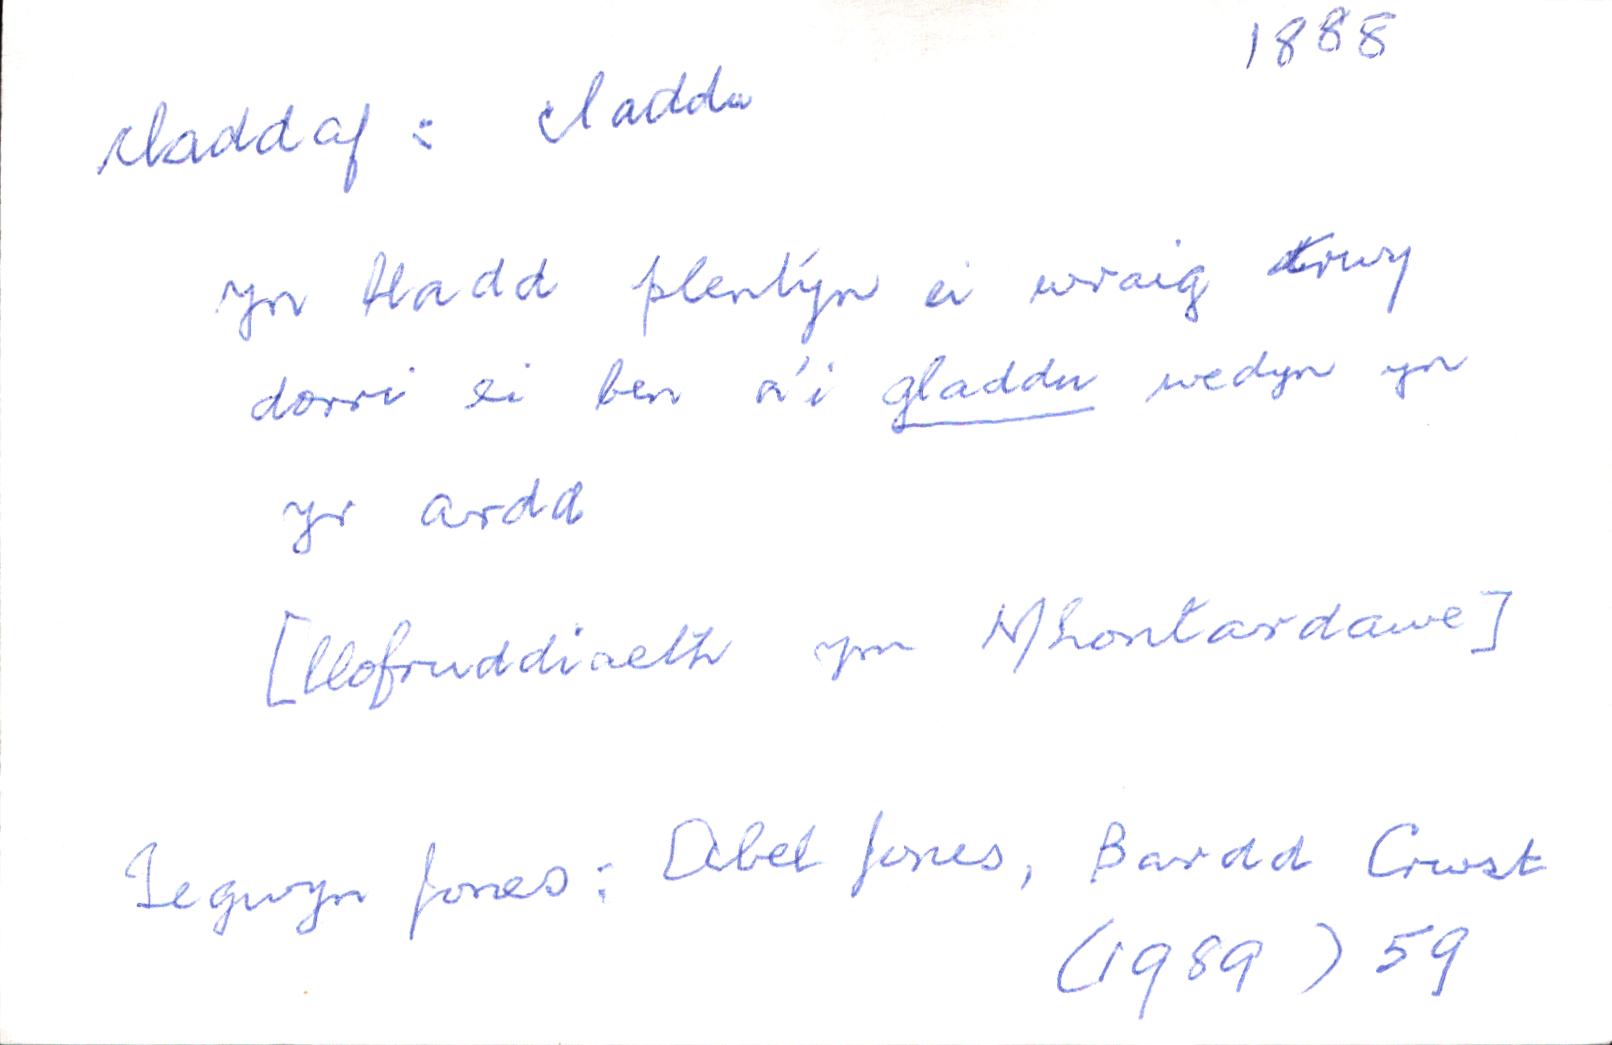 1888
claddaf : claddu
yn lladd plentyn ei wraig trwy
dorri ei ben a'i gladdu wedyn yn
yr ardd
[llofruddiaeth ym Mhontardawe]
Tegwyn Jones : Abel Jones, Bardd Crwst
(1989) 59